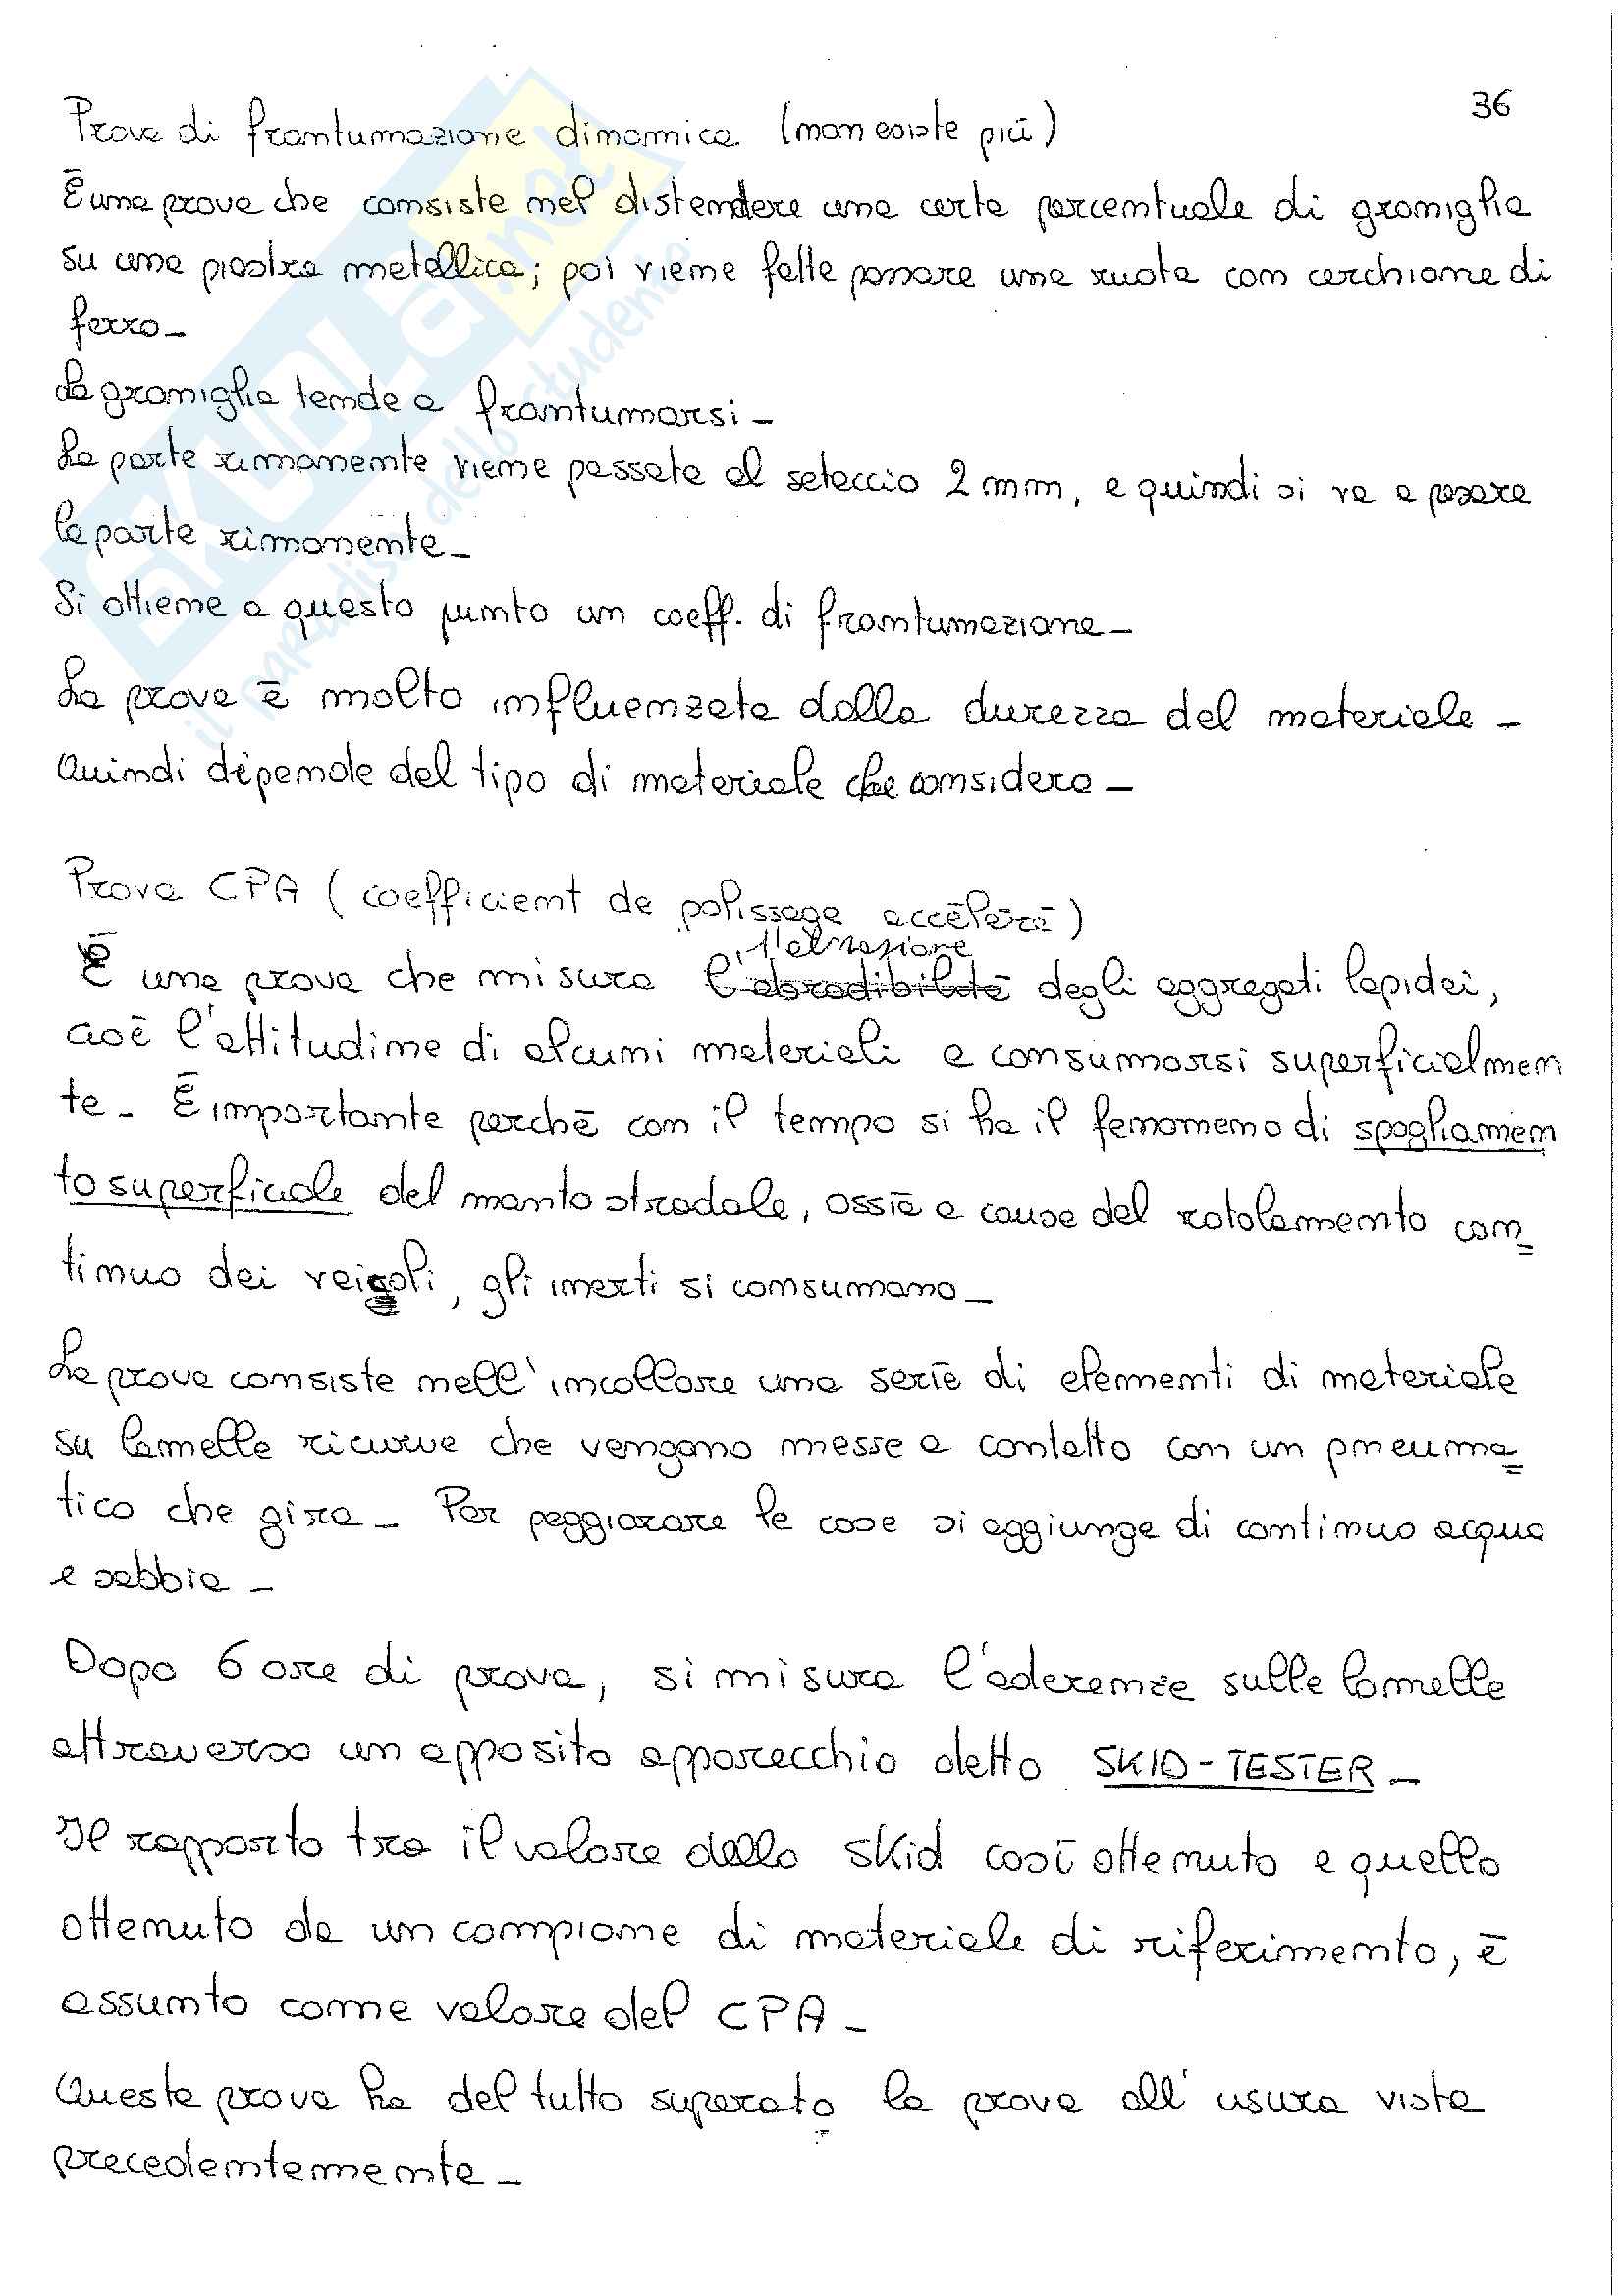 36
Prova di frantumazione dinamica (non esiste più)
È una prova che consiste nel distendere una certa percentuale di graniglia
su una piastra metallica; poi viene fatta passare una ruota con cerchione di
ferro_
La graniglia tende a frantumarsi_
La parte rimanente viene passata al setaccio 2 mm, e quindi si va a pesare
la parte rimanente_
Si ottiene a questo punto un coeff. di frantumazione_
La prova è molto influenzata dalla durezza del materiale_
Quindi dipende dal tipo di materiale che considero_
Prova CPA (coefficient de polissage accéléré)
l'abrasione
È una prova che misura l'abradibilità degli aggregati lapidei,
cioè l'attitudine di alcuni materiali a consumarsi superficialmen
te_ È importante perchè con il tempo si ha il fenomeno di spogliamen
to superficiale del manto stradale, ossia a causa del rotolamento con=
tinuo dei veicoli, gli inerti si consumano_
La prova consiste nell'incollare una serie di elementi di materiale
su lamelle ricurve che vengono messe a contatto con un pneuma=
tico che gira_ Per peggiorare le cose si aggiunge di continuo acqua
e sabbia_
Dopo 6 ore di prova, si misura l'aderenza sulle lamelle
attraverso un apposito apparecchio detto SKID-TESTER_
Il rapporto tra il valore dello skid così ottenuto e quello
ottenuto da un campione di materiale di riferimento, è
assunto come valore del CPA_
Questa prova ha del tutto superato la prova all'usura vista
precedentemente_
SKUOLA.net
il paradiso dello studente